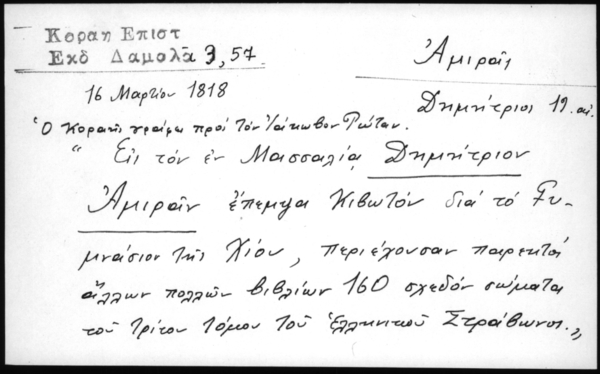 Κοραη Επιστ
Εκδ Δαμολᾶ 3, 57.
Ἀμιρᾶς
16 Μαρτίου 1818
Δημήτριος 19. αἰ.
Ὁ Κοραῆς γράφει πρός τόν Ἰάκωβον Ρώταν.
“ Εἰς τόν ἐν Μασσαλίᾳ Δημήτριον
Ἀμιρᾶν ἔπεμψα κιβωτόν διά τό Γυ-
μνάσιον τῆς Χίου, περιέχουσαν παρεκτός
ἄλλων πολλῶν βιβλίων 160 σχεδόν σώματα
τοῦ τρίτου τόμου τοῦ Ἑλληνικοῦ Στράβωνος.„